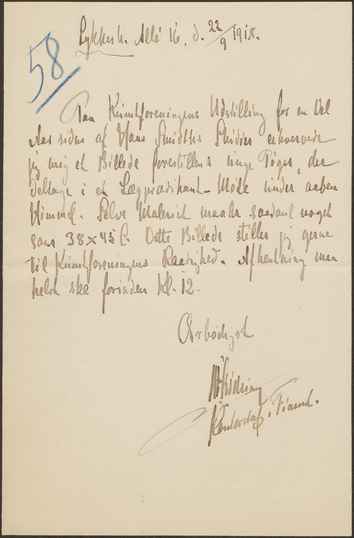 Lykkesh. Allé 16. d. 22/9 1918.
58
Paa Kunstforeningens Udstilling for en Del
Aar siden af Hans Smidths Studier erhvervede
jeg mig et Billede forestillende unge Piger, der
deltage i et Lægprædikant-Møde under aaben
Himmel. Selve Maleriet maaler saadant noget
som 38x45 C. Dette Billede stiller jeg gerne
til Kunstforeningens Raadighed. Afhentning maa
helst ske forinden Kl. 12.
Ærbødigst
Kontorchef i Finansmin.